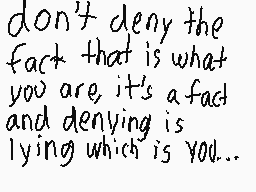 don't deny the
fact that is what
you are, it's a fact
and denying is
lying which is you...